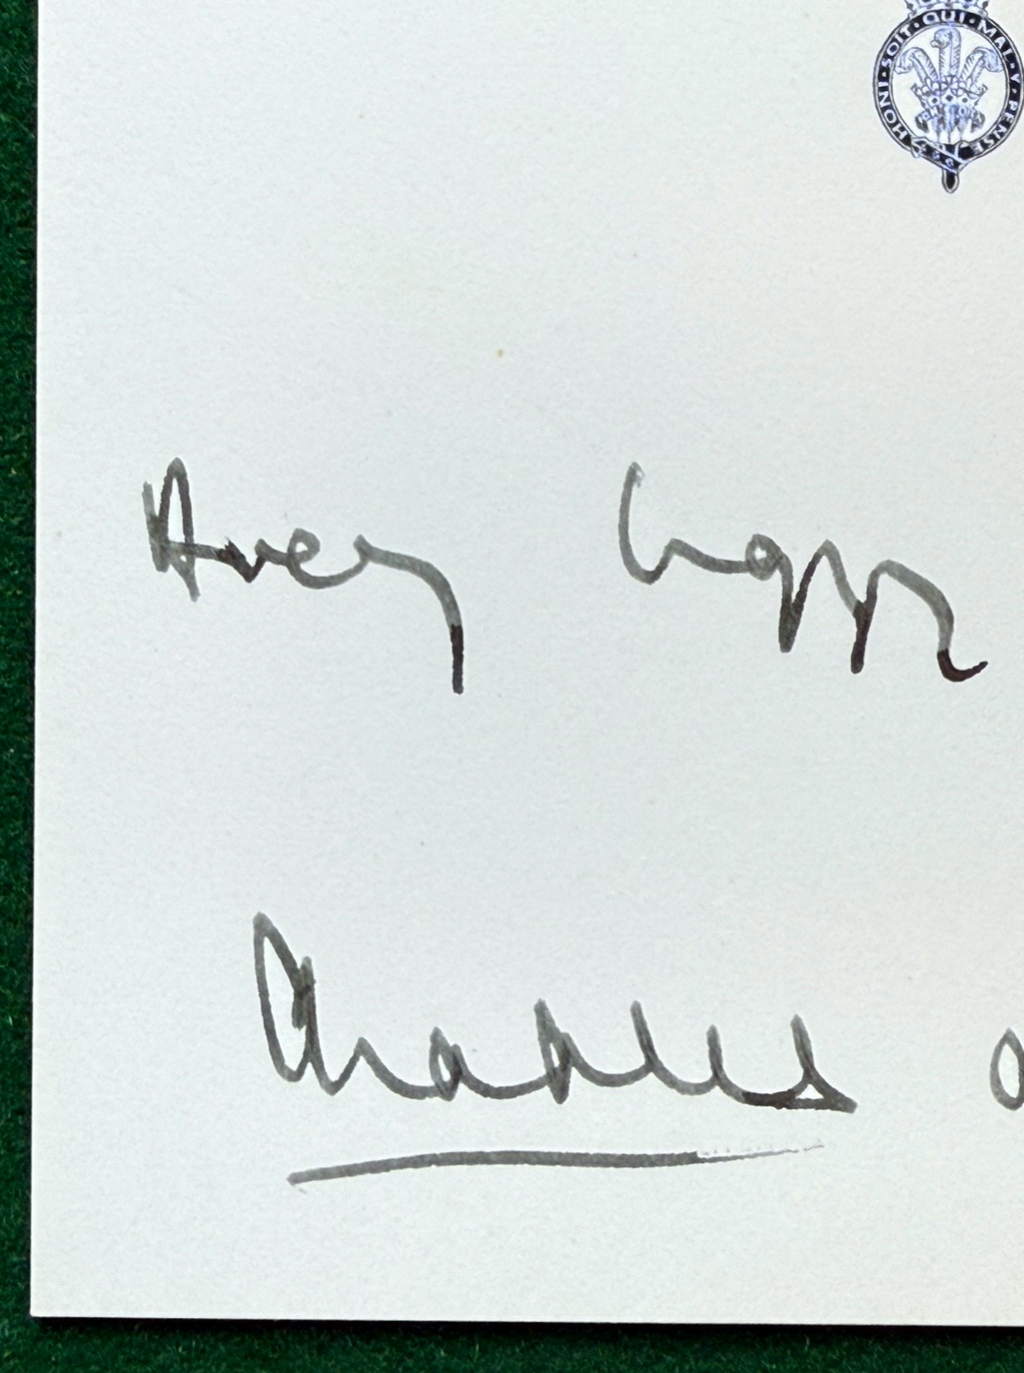 HONI · SOIT · QUI · MAL · Y · PENSE
A very happy
Charles